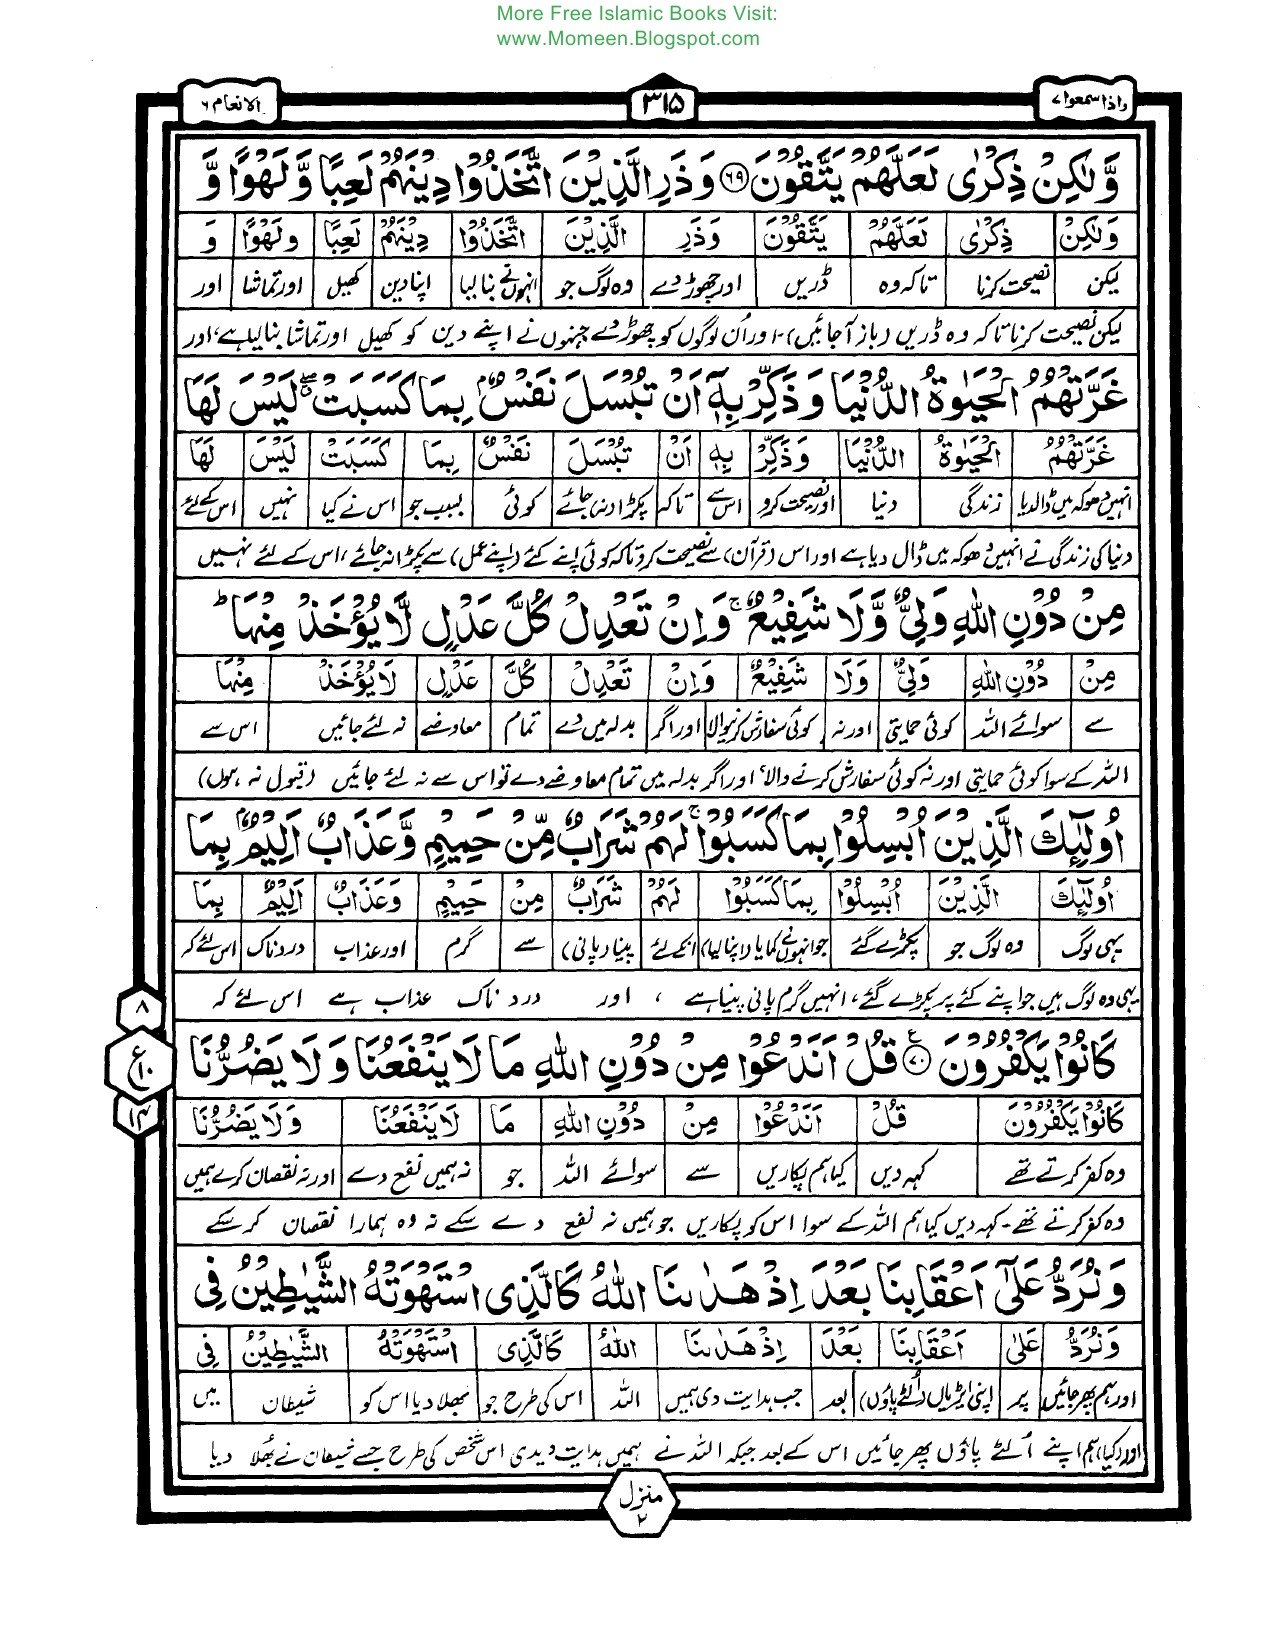 More Free Islamic Books Visit:
www.Momeen.Blogspot.com
واذاسمعوا ۷ ۳۱۵ الانعام ۶
وَّلٰكِنْ ذِكْرٰى لَعَلَّهُمْ يَتَّقُوْنَ ۶۹ وَذَرِ الَّذِيْنَ اتَّخَذُوْا دِيْنَهُمْ لَعِبًا وَّلَهْوًا وَّ
وَلٰكِنْ ذِكْرٰى لَعَلَّهُمْ يَتَّقُوْنَ وَذَرِ الَّذِيْنَ اتَّخَذُوْا دِيْنَهُمْ لَعِبًا وَلَهْوًا وَ
لیکن نصیحت کرنا تاکہ وہ ڈریں اور چھوڑ دے وہ لوگ جو انہوں نے بنا لیا اپنا دین کھیل اور تماشا اور
لیکن نصیحت کرنا تاکہ وہ ڈریں (باز آجائیں)۔ اور اُن لوگوں کو چھوڑ دے جنہوں نے اپنے دین کو کھیل اور تماشا بنا لیا ہے، اور
غَرَّتْهُمُ الْحَيٰوةُ الدُّنْيَا وَذَكِّرْ بِهٖۤ اَنْ تُبْسَلَ نَفْسٌۢ بِمَا كَسَبَتْ ۖ لَيْسَ لَهَا
غَرَّتْهُمُ الْحَيٰوةُ الدُّنْيَا وَذَكِّرْ بِهٖ اَنْ تُبْسَلَ نَفْسٌ بِمَا كَسَبَتْ لَيْسَ لَهَا
انہیں دھوکہ میں ڈالدیا زندگی دنیا اور نصیحت کرو اس سے تاکہ پکڑا نہ جائے کوئی بسبب جو اس نے کیا نہیں اس کے لئے
دنیا کی زندگی نے انہیں دھوکہ میں ڈال دیا ہے اور اس (قرآن) سے نصیحت کرو تاکہ کوئی اپنے کئے (اپنے عمل) سے پکڑا نہ جائے، اس کے لئے نہیں
مِنْ دُوْنِ اللّٰهِ وَلِيٌّ وَّلَا شَفِيْعٌ ۚ وَاِنْ تَعْدِلْ كُلَّ عَدْلٍ لَّا يُؤْخَذْ مِنْهَا ؕ
مِنْ دُوْنِ اللّٰهِ وَلِيٌّ وَلَا شَفِيْعٌ وَاِنْ تَعْدِلْ كُلَّ عَدْلٍ لَا يُؤْخَذْ مِنْهَا
سے سوائے اللہ کوئی حمایتی اور نہ کوئی سفارش کرنیوالا اور اگر بدلہ میں دے تمام معاوضے نہ لئے جائیں اس سے
اللہ کے سوا کوئی حمایتی اور نہ کوئی سفارش کرنے والا، اور اگر بدلہ میں تمام معاوضے دے تو اس سے نہ لئے جائیں (قبول نہ ہوں)
اُولٰٓئِكَ الَّذِيْنَ اُبْسِلُوْا بِمَا كَسَبُوْا ۚ لَهُمْ شَرَابٌ مِّنْ حَمِيْمٍ وَّعَذَابٌ اَلِيْمٌۢ بِمَا
اُولٰٓئِكَ الَّذِيْنَ اُبْسِلُوْا بِمَا كَسَبُوْا لَهُمْ شَرَابٌ مِنْ حَمِيْمٍ وَعَذَابٌ اَلِيْمٌ بِمَا
یہی لوگ وہ لوگ جو پکڑے گئے جو انہوں نے کمایا (اپنا کیا) انکے لئے پینا (پانی) سے گرم اور عذاب دردناک اس لئے کہ
یہی وہ لوگ ہیں جو اپنے کئے پر پکڑے گئے، انہیں گرم پانی پینا ہے، اور درد ناک عذاب ہے اس لئے کہ
۸
ع ۱۰
۱۴
كَانُوْا يَكْفُرُوْنَ ۷۰ قُلْ اَنَدْعُوْا مِنْ دُوْنِ اللّٰهِ مَا لَا يَنْفَعُنَا وَلَا يَضُرُّنَا
كَانُوْا يَكْفُرُوْنَ قُلْ اَنَدْعُوْا مِنْ دُوْنِ اللّٰهِ مَا لَا يَنْفَعُنَا وَلَا يَضُرُّنَا
وہ کفر کرتے تھے کہہ دیں کیا ہم پکاریں سے سوائے اللہ جو نہ ہمیں نفع دے اور نہ نقصان کرے ہمیں
وہ کفر کرتے تھے۔ کہہ دیں کیا ہم اللہ کے سوا اس کو پکاریں جو ہمیں نہ نفع دے سکے نہ وہ ہمارا نقصان کر سکے
وَنُرَدُّ عَلٰٓى اَعْقَابِنَا بَعْدَ اِذْ هَدٰىنَا اللّٰهُ كَالَّذِى اسْتَهْوَتْهُ الشَّيٰطِيْنُ فِى
وَنُرَدُّ عَلٰى اَعْقَابِنَا بَعْدَ اِذْ هَدٰىنَا اللّٰهُ كَالَّذِى اسْتَهْوَتْهُ الشَّيٰطِيْنُ فِى
اور ہم پھر جائیں پر اپنی ایڑیاں (الٹے پاؤں) بعد جب ہدایت دی ہمیں اللہ اس کی طرح جو بھلا دیا اس کو شیطان میں
اور (کیا) ہم اپنے اُلٹے پاؤں پھر جائیں اس کے بعد جبکہ اللہ نے ہمیں ہدایت دیدی اس شخص کی طرح جسے شیطان نے بھُلا دیا
منزل ۲